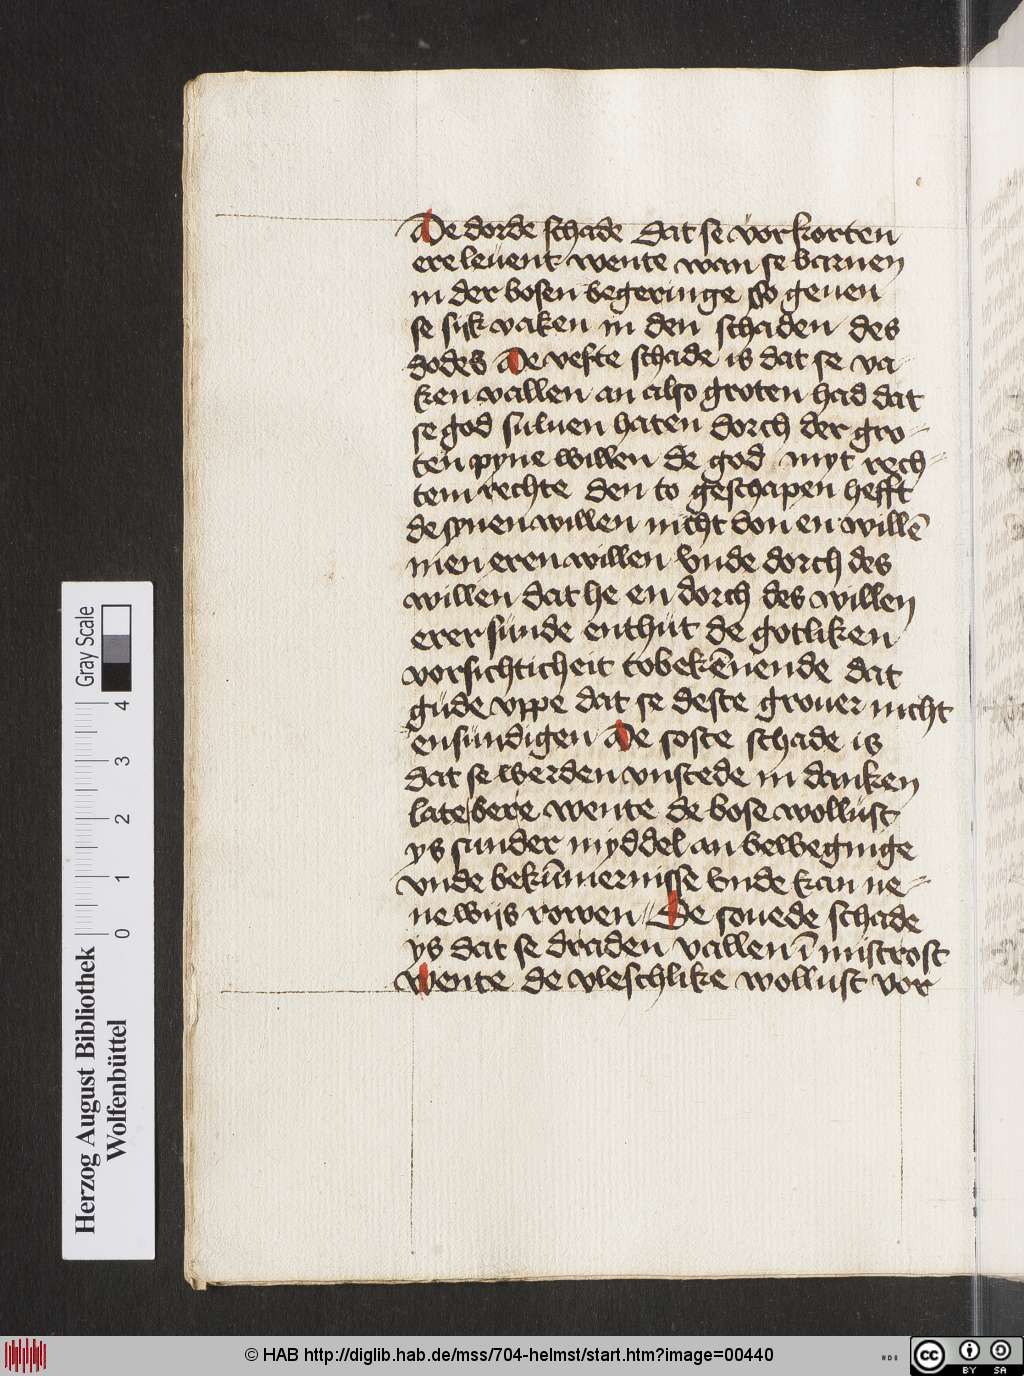 De dorde schade dat se vorkorten
ere leuent wente wan se barnen
in der bosen begeringe so geuen
se sijk vaken in den schaden des
dodes De vefte schade is dat se va
ken vallen an also groten had dat
se god suluen haten dorch der gro-
ten pyne willen de god myt rech-
tem rechte den to geschapen hefft
de synen willen nicht don en willē
men eren willen vnde dorch des
willen dat he en dorch des willen
erer sunde enthut de gotliken
vorsichticheit tobekēnende dat
gude vppe dat se deste grouer nicht
ensundigen De soste schade is
dat se werden vnstede in danken
late bere wente de bose wollust
ys sunder myddel an beweginge
vnde bekūmernisse vnde kan ne-
ne wijs rowen De souede schade
ys dat se draden vallen ī mistrost
wente de vleschlike wollust vor
Herzog August Bibliothek
Wolfenbüttel
0 1 2 3 4
Gray Scale
© HAB http://diglib.hab.de/mss/704-helmst/start.htm?image=00440
cc BY SA